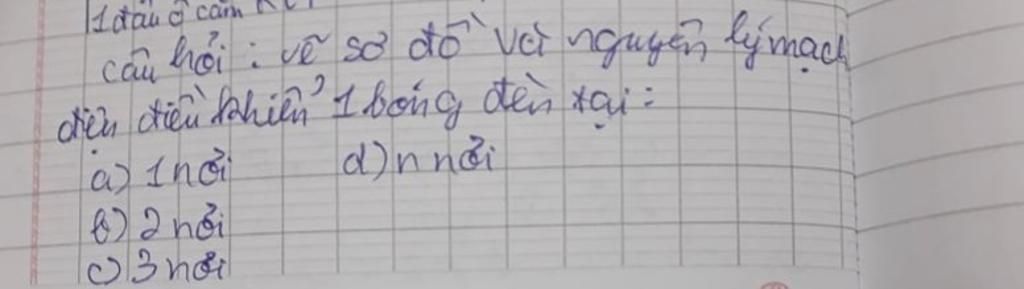 1 đầu ổ cắm
câu hỏi : vẽ sơ đồ và nguyên lý mạch
điện điều khiển 1 bóng đèn tại :
a) 1 nơi d) n nơi
b) 2 nơi
c) 3 nơi